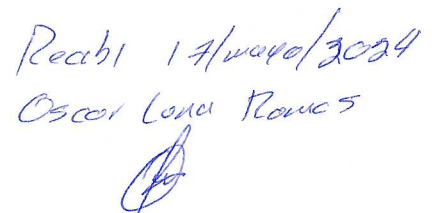 Recibi 17/mayo/2024
Oscar Luna Ramos